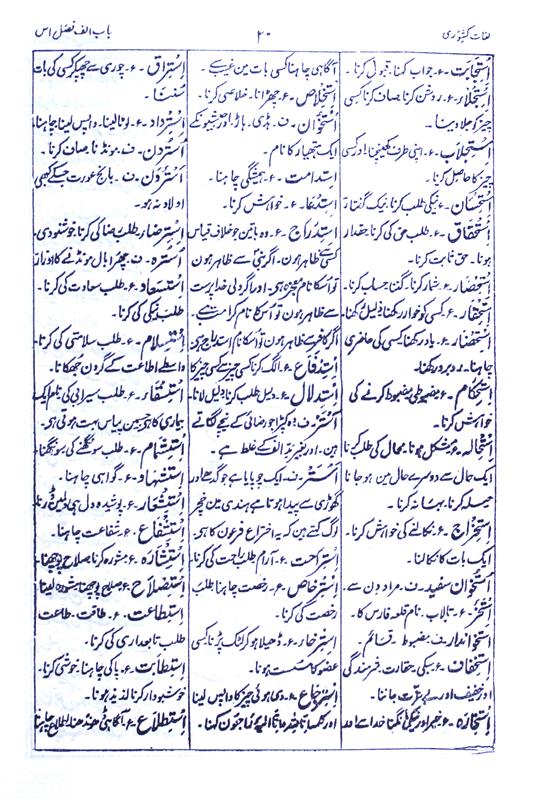 لغات کشوری
۲۰
باب الف فصل اس
اِستِجابت ۔ ع ۔ جواب کہنا ۔ قبول کرنا ۔
اِستِجلاء ۔ ع ۔ روشن کرنا ۔ صاف کرنا کسی
چیز کو جلا دینا ۔
اِستِجلاب ۔ ع ۔ اپنی طرف کھینچنا اور کسی
چیز کا حاصل کرنا ۔
اِستِحسان ۔ نیکی طلب کرنا ۔ نیک گننا ۔
اِستِحقاق ۔ ع ۔ طلب حق کی کرنا ۔ حقدار
ہونا ۔ حق ثابت کرنا ۔
ع ۔ شمار کرنا ۔ گننا ۔ حساب کرنا ۔
اِستِحقار ۔ ع ۔ کسی کو خوار رکھنا ۔ ذلیل رکھنا
اِستِحضار ۔ ع ۔ یاد رکھنا ۔ کسی کی حاضری
چاہنا ۔ روبرو رکھنا ۔
اِستِحکام ۔ ع ۔ مضبوطی ۔ مضبوط کرنے کی
خواہش کرنا ۔
اِستِحالہ ۔ ع ۔ مشکل ہونا ۔ محال کی طلب کرنا
ایک حال سے دوسرے حال میں ہو جانا
حیلہ کرنا ۔ بہانہ کرنا ۔
اِستِخراج ۔ ع ۔ نکالنے کی خواہش کرنا ۔
ایک بات کا نکالنا ۔
اُستخوان سفید ۔ ف ۔ مراد دن سے ۔
ع ۔ تالاب ۔ نام قلعہ فارس کا ۔
اُستخواندار ۔ ف ۔ مضبوط ۔ قسائم ۔
اِستِخفاف ۔ ع ۔ سبکی ۔ حقارت ۔ شرمندگی
اور خفیف اور بے عزت جاننا ۔
اِستِخارہ ۔ ع ۔ خیر اور نیکی مانگنا خدا سے اور
آگاہی چاہنا کسی بات میں غیب سے ۔
اِستِخلاص ۔ ع ۔ چھڑانا ۔ خلاصی کرنا ۔
اُستُخوان ۔ ف ۔ ہڈی ۔ ہاڑ ۔ اور حبشیوں کے
ایک ہتھیار کا نام ۔
اِستِدامت ۔ ع ۔ ہمیشگی چاہنا ۔
اِستِدعا ۔ ع ۔ خواہش کرنا ۔
اِستِدراج ۔ ع ۔ وہ باتیں جو خلاف قیاس
کسی سے ظاہر ہوں ۔ اگر نبی سے ظاہر ہوں
تو اسکا نام معجزہ ہی ۔ اور اگر ولی خدا پرست
سے ظاہر ہوں تو اسکا نام کرامت ہے ۔
اگر کافر سے ظاہر ہوں تو اسکا نام استدراج ہی
اِستِدفاع ۔ ع ۔ الگ کرنا کسی چیز سے کسی چیز کا
اِستِدلال ۔ ع ۔ دلیل طلب کرنا ۔ دلیل لانا ۔
اَستَر ۔ ف ۔ وہ کپڑا جو رضائی کے نیچے لگاتے
ہیں ۔ اور بغیر مد الف کے غلط ہے ۔
اَستَر ۔ ف ۔ ایک چوپایا ہے جو گدھے اور
گھوڑی سے پیدا ہوتا ہے ہندی میں خچر
لوگ کہتے ہیں کہ یہ اختراع فرعون کا ہی ۔
اِستِراحت ۔ ع ۔ آرام طلب راحت کی کرنا ۔
اِستِرخاص ۔ ع ۔ رخصت چاہنا ۔ طلب
رخصت کی کرنا ۔
اِستِرخاء ۔ ع ۔ ڈھیلا ہو کر لٹک پڑنا کسی
عضو کا سست ہونا ۔
اِستِرجاع ۔ ع ۔ دی ہوئی چیز کا واپس لینا
اِستِراق ۔ ع ۔ چوری سے چھپکر کسی کی بات
سننا ۔
اِستِرداد ۔ ع ۔ لوٹا لینا ۔ واپس لینا چاہنا ۔
اُستردن ۔ ف ۔ مونڈنا ۔ صاف کرنا ۔
اَسترون ۔ ف ۔ بانجھ عورت جسکے کبھی
اولاد نہ ہو ۔
اِستِرضاء ۔ ع ۔ طلب رضا کی کرنا ۔ خوشنودی ۔
اُسترہ ۔ ف ۔ چھرا بال مونڈنے کا اوزار
اِستِسعاد ۔ ع ۔ طلب سعادت کی کرنا ۔
طلب نیکی کی کرنا ۔
اِستِسلام ۔ ع ۔ طلب سلامتی کی کرنا ۔
واسطے اطاعت کے گردن جھکانا ۔
اِستِسقاء ۔ ع ۔ طلب سیرابی کی ۔ نام ایک
بیماری کا ہو جسمیں پیاس بہت ہوتی ہی ۔
اِستِشمام ۔ ع ۔ طلب سونگھنے کی ۔ سونگھنا ۔
اِستِشہاد ۔ ع ۔ گواہی چاہنا ۔
اِستِشعار ۔ ع ۔ پوشیدہ دل ہی دلمیں ڈرنا
اِستِشفاع ۔ ع ۔ شفاعت چاہنا ۔
اِستِشارہ ۔ ع ۔ مشورہ کرنا ۔ صلاح پوچھنا ۔
اِستِصلاح ۔ ع ۔ صلاح پوچھنا ۔ مشورہ لینا
اِستِطاعت ۔ ع ۔ طاقت ۔ طاعت
طلب تابعداری کی کرنا ۔
اِستِطابت ۔ ع ۔ پاکی چاہنا ۔ خوشی کرنا ۔
خوشبودار کرنا ۔ لذیذ ہونا ۔
اِستِطلاع ۔ ع ۔ آگاہی ڈھونڈھنا ۔ اطلاع چاہنا